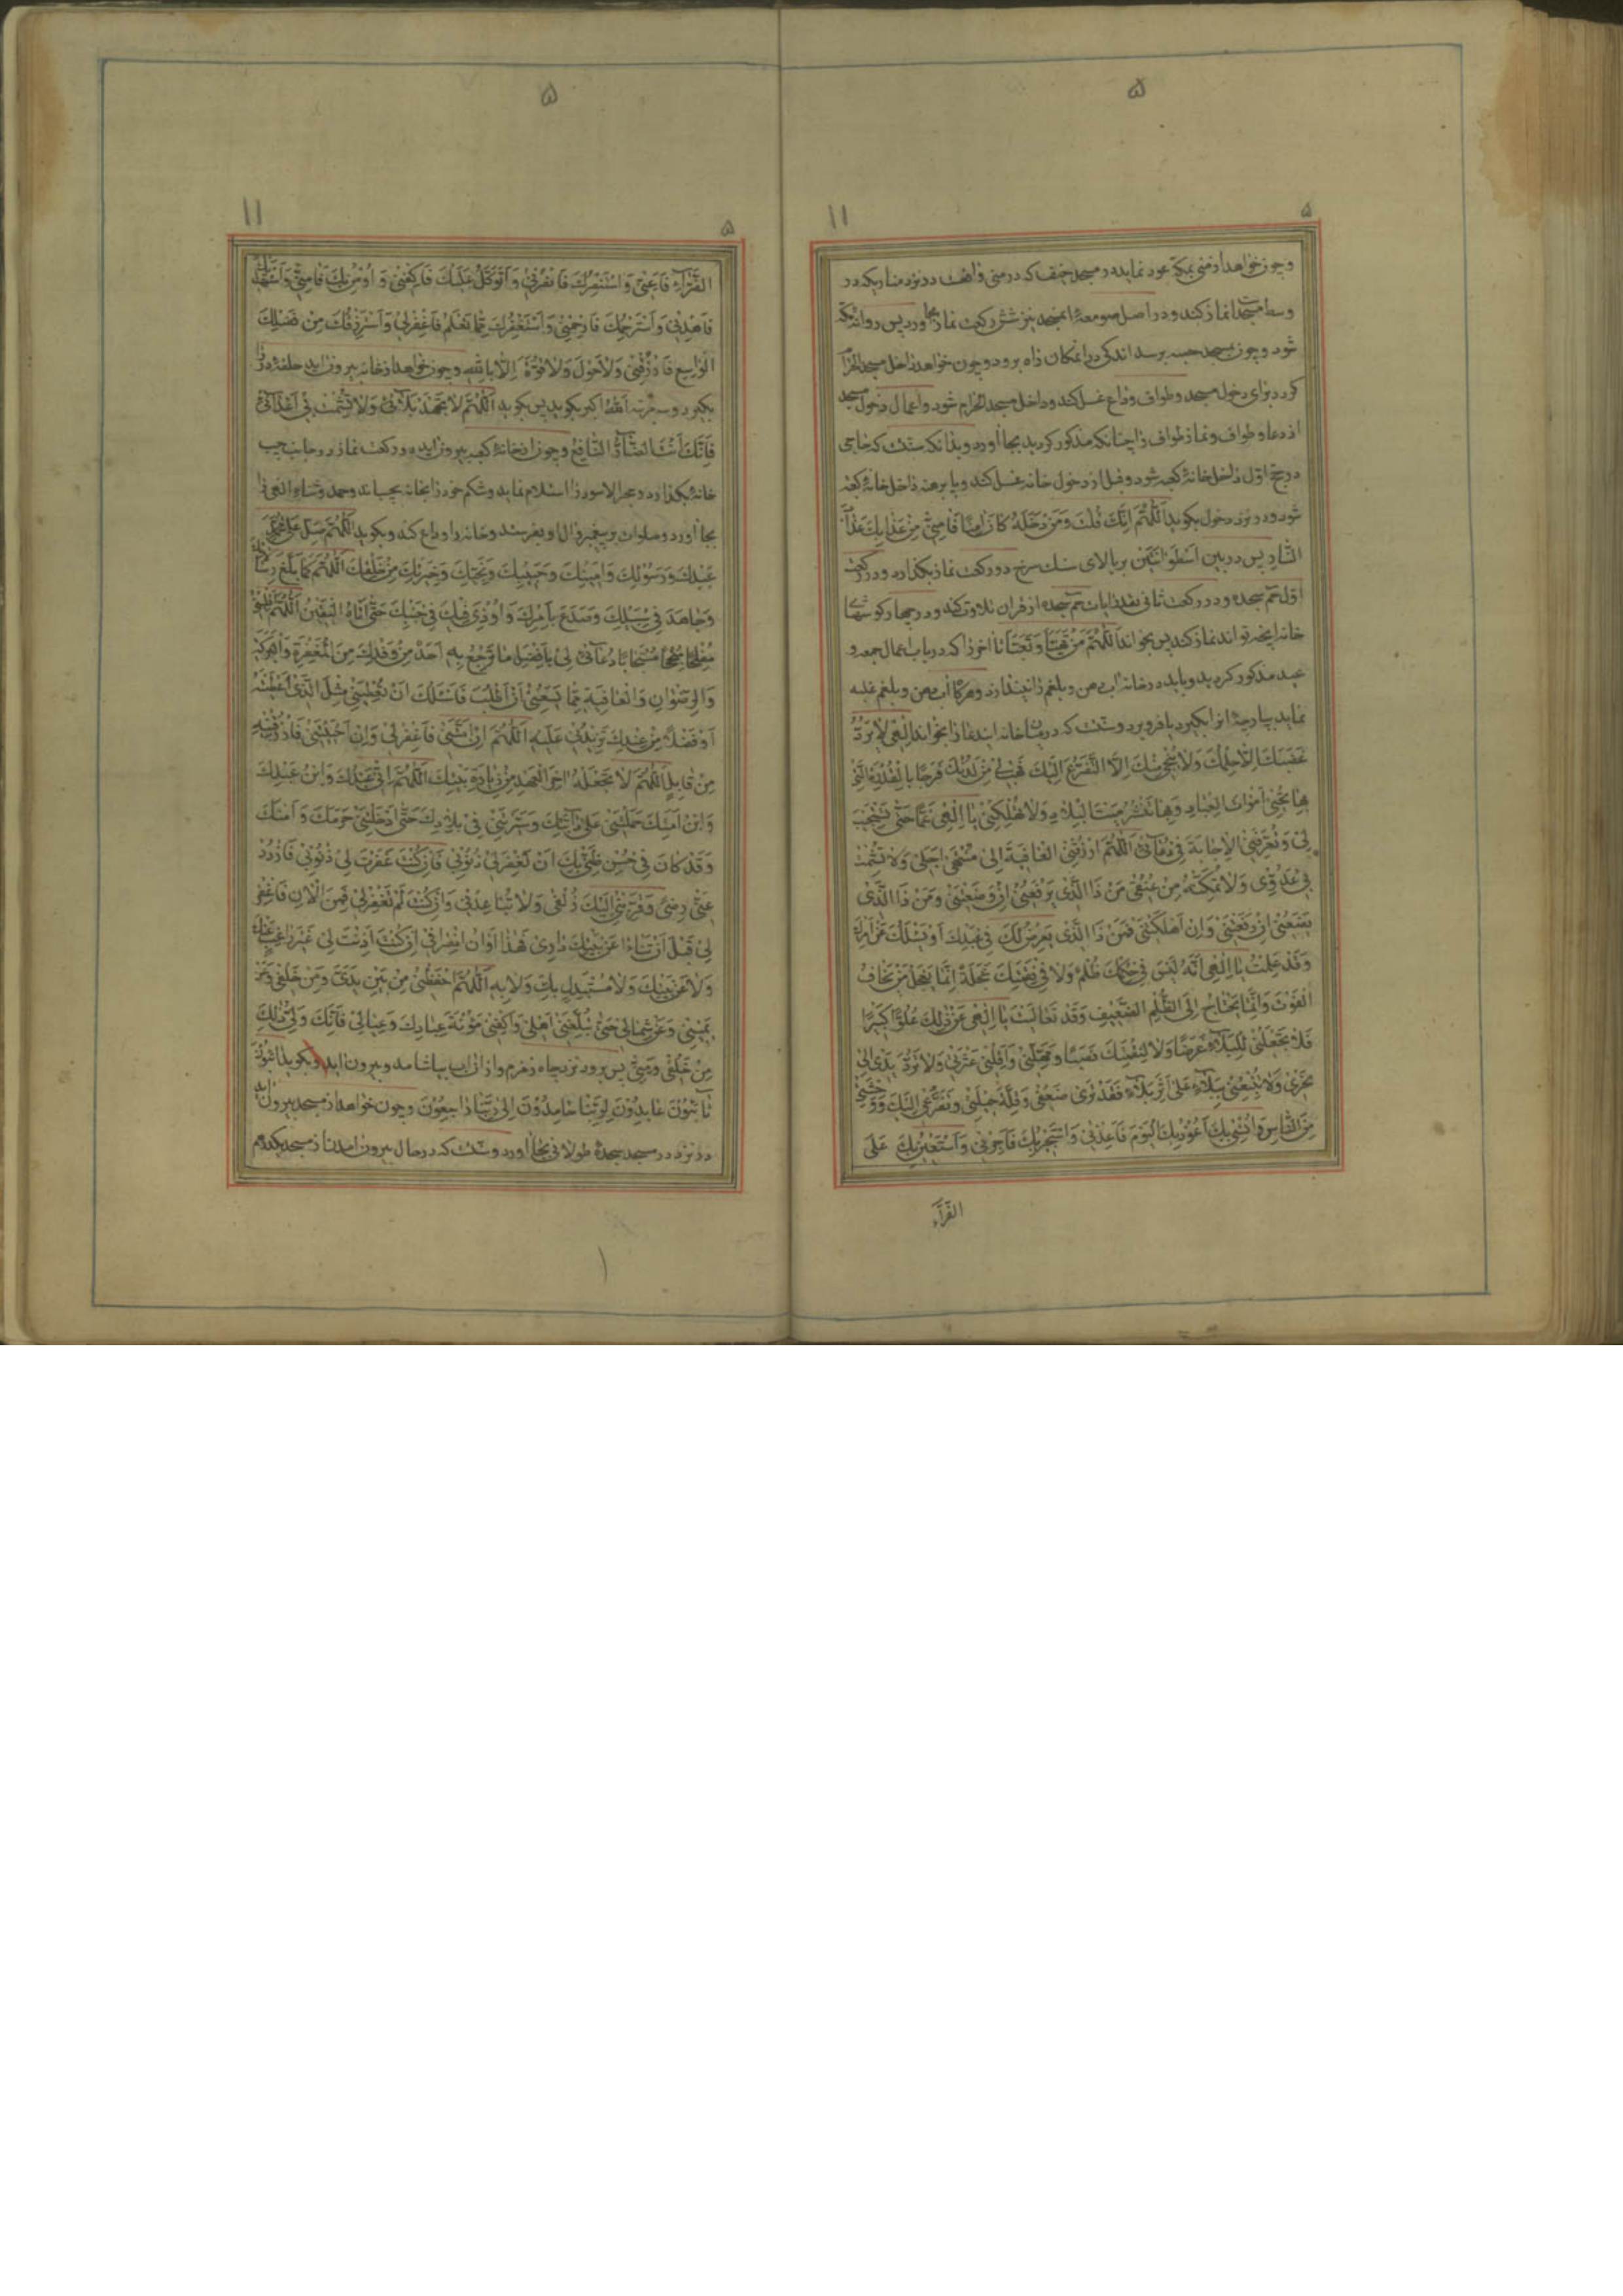 ۵
۵
۱۱
وچون خواهد از منی بمکه عود نماید در مسجد خیف که در منی واقعست در نزد مناریکه در
وسط مسجد است نماز کند و در اصل صومعهٔ انمسجد نیز شش رکعت نماز بجا اورد پس روانهٔ مکه
شود و چون بمسجد حصبه برسد اندکی در انمکان راه برود و چون خواهد داخل مسجد الحرام
کردد برای دخول مسجد و طواف وداع غسل کند و داخل مسجد الحرام شود و اعمال دخول مسجد
از دعا و طواف و نماز طواف را چنانکه مذکور کردید بجا اورد و بدانکه سنتست که حاجی
در حج اول داخل خانهٔ کعبه شود و قبل از دخول خانه غسل کند و پا برهنه داخل خانهٔ کعبه
شود و در نزد دخول بکوید اَللّٰهُمَّ اِنَّكَ قُلْتَ وَمَنْ دَخَلَهُ كٰانَ اٰمِنًا فَاٰمِنّٖی مِنْ عَذٰابِكَ عَذٰابَ
النّٰارِ پس در بین اُسْطُوٰانَتَیْن بر بالای سنك سرخ دو رکعت نماز بکذارد و در رکعت
اول حم سجده و در رکعت ثانی بقدر ایات حم سجده از قران تلاوت کند و در چهار کوشهای
خانه اینچه تواند نماز کند پس بخواند اَللّٰهُمَّ مَنْ تَهَیَّأَ وَتَعَبَّأَ تا اخر را که در باب اعمال جمعه و
عید مذکور کردید و باید در خانه اب دهن و بلغم را نیندازد و هرکاه اب دهن و بلغم غلبه
نماید بپارچهٔ انرا بکیرد یا فرو برد و سنتست که در میان خانه این دعا را بخواند اِلٰهی لٰا یَرُدُّ
غَضَبَكَ اِلّٰا حِلْمُكَ وَلٰا یُنْجٖی مِنْكَ اِلَّا التَّضَرُّعُ اِلَیْكَ فَهَبْ لٖی مِنْ لَدُنْكَ فَرَجًا بِالْقُدْرَةِ الَّتٖی
بِهٰا تُحْیٖی اَمْوٰاتَ الْعِبٰادِ وَبِهٰا تَنْشُرُ مَیْتَ الْبِلٰادِ وَلٰا تُهْلِكْنٖی یٰا اِلٰهٖی غَمًّا حَتّٰی تَسْتَجٖیبَ
لٖی وَتُعَرِّفَنِی الْاِجٰابَةَ فٖی دُعٰائٖی اَللّٰهُمَّ ارْزُقْنِی الْعٰافِیَةَ اِلٰی مُنْتَهٰی اَجَلٖی وَلٰا تُشْمِتْ
بٖی عَدُوّٖی وَلٰا تُمَكِّنْهُ مِنْ عُنُقٖی مَنْ ذَا الَّذٖی یَرْفَعُنٖی اِنْ وَضَعْتَنٖی وَمَنْ ذَا الَّذٖی
یَضَعُنٖی اِنْ رَفَعْتَنٖی وَاِنْ اَهْلَكْتَنٖی فَمَنْ ذَا الَّذٖی یَعْرِضُ لَكَ فٖی عَبْدِكَ اَوْ یَسْئَلُكَ عَنْ اَمْرِهٖ
وَقَدْ عَلِمْتُ یٰا اِلٰهٖی اَنَّهُ لَیْسَ فٖی حُكْمِكَ ظُلْمٌ وَلٰا فٖی نَقِمَتِكَ عَجَلَةٌ اِنَّمٰا یَعْجَلُ مَنْ یَخٰافُ
الْفَوْتَ وَاِنَّمٰا یَحْتٰاجُ اِلَی الظُّلْمِ الضَّعٖیفُ وَقَدْ تَعٰالَیْتَ یٰا اِلٰهٖی عَنْ ذٰلِكَ عُلُوًّا كَبٖیرًا
فَلٰا تَجْعَلْنٖی لِلْبَلٰاءِ غَرَضًا وَلٰا لِنَقِمَتِكَ نَصَبًا وَمَهِّلْنٖی وَاَقِلْنٖی عَثْرَتٖی وَلٰا تَرُدَّ یَدٖی اِلٰی
نَحْرٖی وَلٰا تُتْبِعْنٖی بِبَلٰاءٍ عَلٰی اَثَرِ بَلٰاءٍ فَقَدْ تَرٰی ضَعْفٖی وَقِلَّةَ حٖیلَتٖی وَتَضَرُّعٖی اِلَیْكَ وَوَحْشَتٖی
مِنَ النّٰاسِ وَاُنْسٖی بِكَ اَعُوذُ بِكَ الْیَوْمَ فَاَعِذْنٖی وَاَسْتَجٖیرُ بِكَ فَاَجِرْنٖی وَاَسْتَعٖینُ بِكَ عَلَی
الضَّرّٰاءِ
۵
۵
۱۱
الضَّرّٰاءِ فَاَعِنّٖی وَاَسْتَنْصِرُكَ فَانْصُرْنٖی وَاَتَوَكَّلُ عَلَیْكَ فَاكْفِنٖی وَاُؤْمِنُ بِكَ فَاٰمِنّٖی وَاَسْتَهْدٖیكَ
فَاهْدِنٖی وَاَسْتَرْحِمُكَ فَارْحَمْنٖی وَاَسْتَغْفِرُكَ مِمّٰا تَعْلَمُ فَاغْفِرْ لٖی وَاَسْتَرْزِقُكَ مِنْ فَضْلِكَ
الْوٰاسِعِ فَارْزُقْنٖی وَلٰا حَوْلَ وَلٰا قُوَّةَ اِلّٰا بِاللّٰهِ وچون خواهد از خانه بیرون اید حلقهٔ در را
بکیرد و سه مرتبه اَللّٰهُ اکبر بکوید پس بکوید اَللّٰهُمَّ لٰا تَجْهَدْ بَلٰائَنٰا وَلٰا تُشْمِتْ بٖی اَعْدٰائٖی
فَاِنَّكَ اَنْتَ الضّٰارُّ النّٰافِعُ وچون از خانهٔ کعبه بیرون اید دو رکعت نماز در جانب چپ
خانه بکذارد و حجر الاسود را استلام نماید و شکم خود را بخانه بچسباند و حمد و ثناء الهی را
بجا اورد و صلوات بر پیغمبر و ال او بفرستد و خانه را وداع کند و بکوید اَللّٰهُمَّ صَلِّ عَلٰی مُحَمَّدٍ
عَبْدِكَ وَرَسُولِكَ وَاَمٖینِكَ وَحَبٖیبِكَ وَنَجِیِّكَ وَخِیَرَتِكَ مِنْ خَلْقِكَ اَللّٰهُمَّ كَمٰا بَلَّغَ رِسٰالٰاتِكَ
وَجٰاهَدَ فٖی سَبٖیلِكَ وَصَدَعَ بِاَمْرِكَ وَاُوذِیَ فٖیكَ وَفٖی جَنْبِكَ حَتّٰی اَتٰاهُ الْیَقٖینُ اَللّٰهُمَّ اقْلِبْنٖی
مُفْلِحًا مُنْجِحًا مُسْتَجٰابًا دُعٰائٖی لٖی بِاَفْضَلِ مٰا یَرْجِعُ بِهٖ اَحَدٌ مِنْ وَفْدِكَ مِنَ الْمَغْفِرَةِ وَالْبَرَكَةِ
وَالرِّضْوٰانِ وَالْعٰافِیَةِ مِمّٰا یَسَعُنٖی اَنْ اَطْلُبَ فَاَسْئَلُكَ اَنْ تُعْطِیَنٖی مِثْلَ الَّذٖی اَعْطَیْتَهُ
اَوْ فَضْلًا مِنْ عِنْدِكَ تَزٖیدُنٖی عَلَیْهِ اَللّٰهُمَّ اِنْ اَمَتَّنٖی فَاغْفِرْ لٖی وَاِنْ اَحْیَیْتَنٖی فَارْزُقْنٖیهِ
مِنْ قٰابِلٍ اَللّٰهُمَّ لٰا تَجْعَلْهُ اٰخِرَ الْعَهْدِ مِنْ زِیٰارَةِ بَیْتِكَ اَللّٰهُمَّ اِنّٖی عَبْدُكَ وَابْنُ عَبْدِكَ
وَابْنُ اَمَتِكَ حَمَلْتَنٖی عَلٰی دٰابَّتِكَ وَسَیَّرْتَنٖی فٖی بِلٰادِكَ حَتّٰی اَدْخَلْتَنٖی حَرَمَكَ وَاَمْنَكَ
وَقَدْ كٰانَ فٖی حُسْنِ ظَنّٖی بِكَ اَنْ تَغْفِرَ لٖی ذُنُوبٖی فَاِنْ كُنْتَ غَفَرْتَ لٖی ذُنُوبٖی فَازْدَدْ
عَنّٖی رِضًی وَقَرِّبْنٖی اِلَیْكَ زُلْفٰی وَلٰا تُبٰاعِدْنٖی وَاِنْ كُنْتَ لَمْ تَغْفِرْ لٖی فَمِنَ الْاٰنِ فَاغْفِرْ
لٖی قَبْلَ اَنْ تَنْاٰی عَنْ بَیْتِكَ دٰارٖی فَهٰذٰا اَوٰانُ انْصِرٰافٖی اِنْ كُنْتَ اَذِنْتَ لٖی غَیْرَ رٰاغِبٍ عَنْكَ
وَلٰا عَنْ بَیْتِكَ وَلٰا مُسْتَبْدِلٍ بِكَ وَلٰا بِهٖ اَللّٰهُمَّ احْفَظْنٖی مِنْ بَیْنِ یَدَیَّ وَمِنْ خَلْفٖی وَعَنْ
یَمٖینٖی وَعَنْ شِمٰالٖی حَتّٰی تُبَلِّغَنٖی اَهْلٖی وَاكْفِنٖی مَؤُنَةَ عِبٰادِكَ وَعِیٰالٖی فَاِنَّكَ وَلِیُّ ذٰلِكَ
مِنْ خَلْقِكَ وَمِنّٖی پس برود نزد چاه زمزم و از ان اب بیاشامد و بیرون اید و بکوید اٰئِبُونَ
تٰائِبُونَ عٰابِدُونَ لِرَبِّنٰا حٰامِدُونَ اِلٰی رَبِّنٰا رٰاجِعُونَ وچون خواهد از مسجد بیرون اید
در نزد در مسجد سجدهٔ طولانی بجا اورد و سنتست که در حال بیرون امدن از مسجد یکدرهم
۱